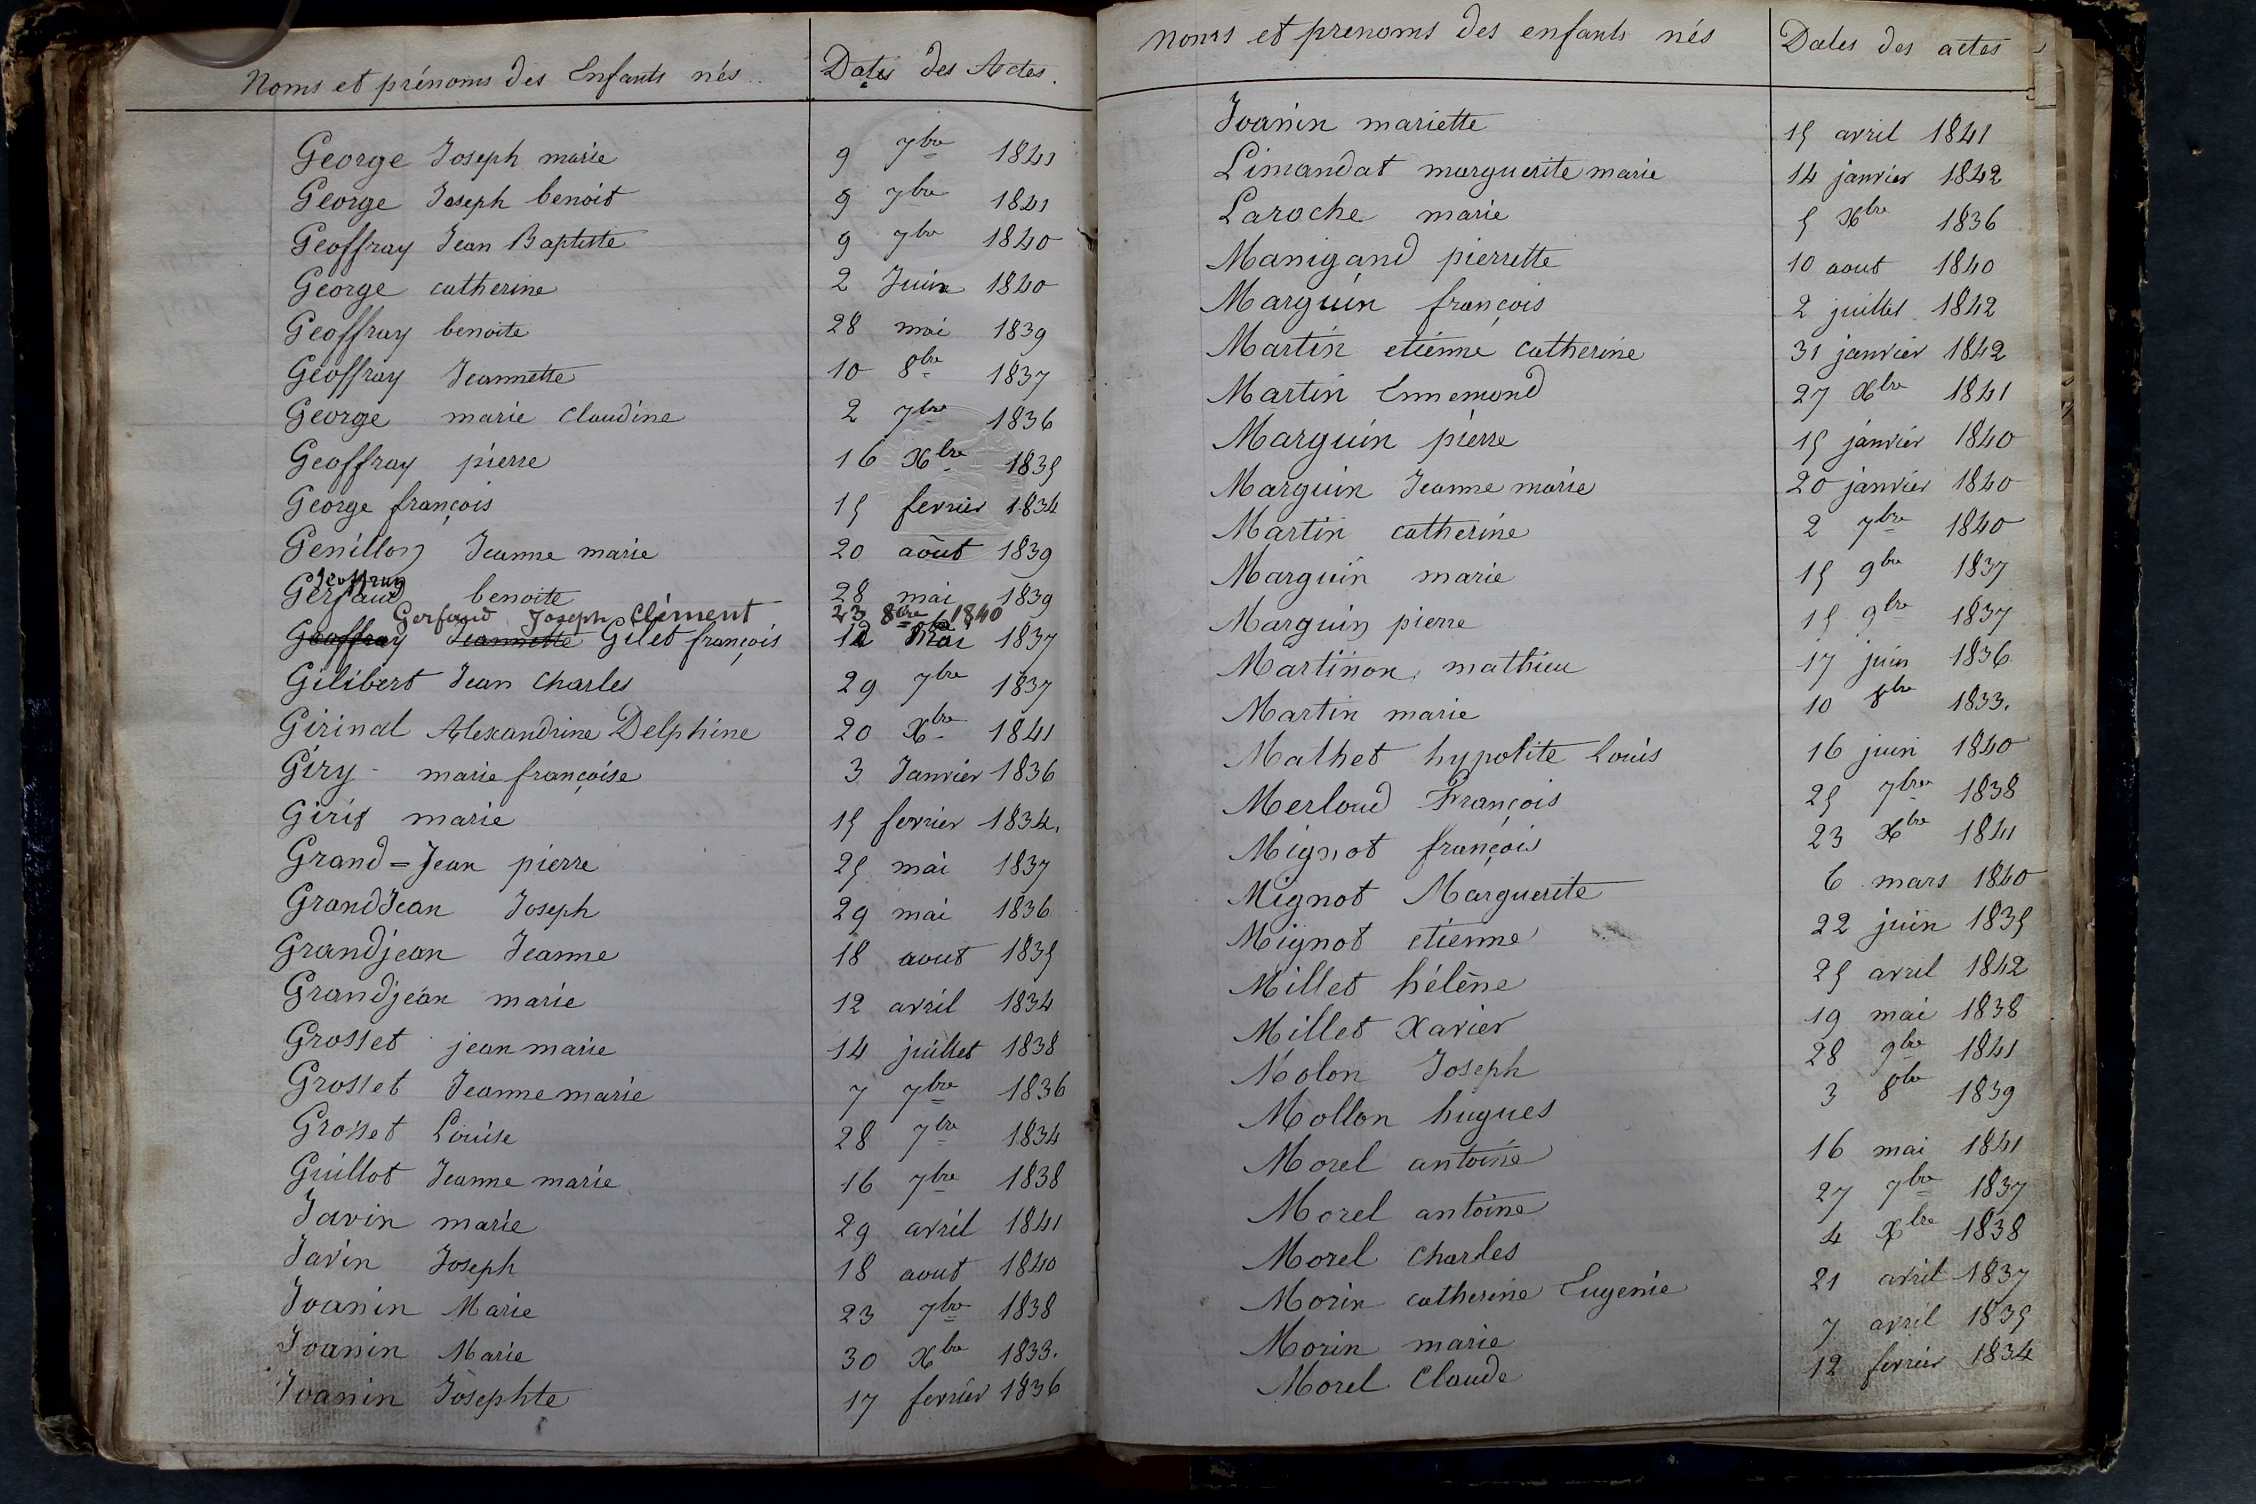 Noms et prénoms des Enfants nés Dates des Actes.
George Joseph marie 9 7bre 1841
George Joseph benoit 9 7bre 1841
Geoffray Jean Baptiste 9 7bre 1840
George catherine 2 Juin 1840
Geoffray benoite 28 mai 1839
Geoffray Jeannette 10 8bre 1837
George marie Claudine 2 7bre 1836
Geoffray pierre 16 Xbre 1835
George françois 15 fevrier 1834
Genillon Jeanne marie 20 août 1839
Geoffray
Gerfaud benoite 28 mai 1839
Gerfaud Joseph Clément 23 8bre 1840
Geoffray Jeannette Gilet françois 12 Mai 1837
Gilibert Jean Charles 29 7bre 1837
Girinal Alexandrine Delphine 20 Xbre 1841
Giry marie françoise 3 Janvier 1836
Girif marie 15 fevrier 1834.
Grand=Jean pierre 25 mai 1837
GrandJean Joseph 29 mai 1836
Grandjean Jeanne 18 aout 1835
Grandjean marie 12 avril 1834
Grosset jean marie 14 juillet 1838
Grosset Jeanne marie 7 7bre 1836
Grosset Louise 28 7bre 1834
Guillot Jeanne marie 16 7bre 1838
Javin marie 29 avril 1841
Javin Joseph 18 aout 1840
Joanin Marie 23 7bre 1838
Joanin Marie 30 Xbre 1833.
Joanin Josephte 17 fevrier 1836
Noms et prenoms des enfants nés Dates des actes
Joanin mariette 15 avril 1841
Limandat marguerite marie 14 janvier 1842
Laroche marie 5 Xbre 1836
Manigand pierrette 10 aout 1840
Marguin françois 2 juillet 1842
Martin etienne catherine 31 janvier 1842
Martin Ennemond 27 Xbre 1841
Marguin pierre 15 janvier 1840
Marguin Jeanne marie 20 janvier 1840
Martin catherine 2 7bre 1840
Marguin marie 15 9bre 1837
Marguin pierre 15 9bre 1837
Martinon mathieu 17 juin 1836
Martin marie 10 8bre 1833.
Mathet hypolite Louis 16 juin 1840
Merloud François 25 7bre 1838
Mignot françois 23 Xbre 1841
Mignot Marguerite 6 mars 1840
Mignot etienne 22 juin 1835
Millet hélène 25 avril 1842
Millet Xavier 19 mai 1838
Molon Joseph 28 9bre 1841
Mollon hugues 3 8bre 1839
Morel antoine 16 mai 1841
Morel antoine 27 7bre 1837
Morel Charles 4 Xbre 1838
Morin catherine Eugenie 21 avril 1837
Morin marie 7 avril 1835
Morel Claude 12 fevrier 1834